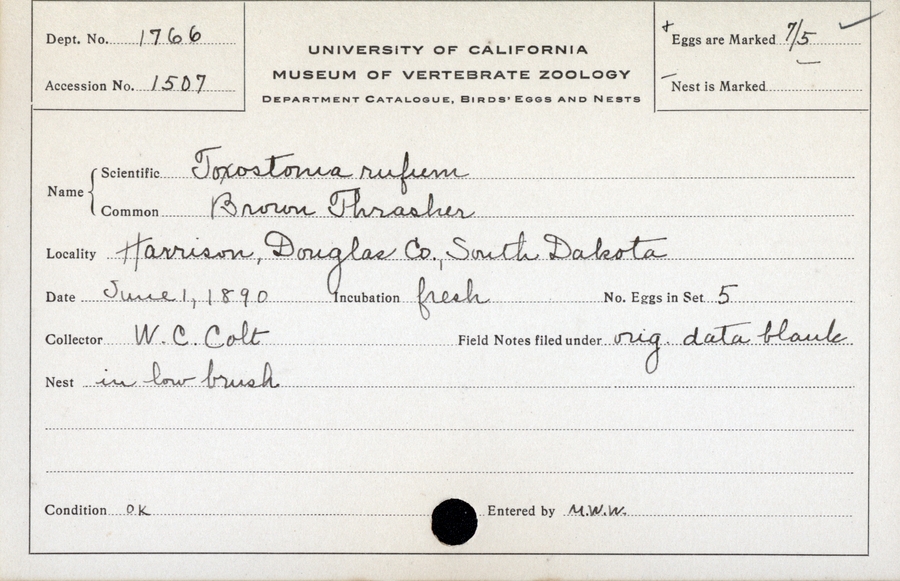 Dept. No. 1766
Accession No. 1507
UNIVERSITY OF CALIFORNIA
MUSEUM OF VERTEBRATE ZOOLOGY
DEPARTMENT CATALOGUE, BIRDS' EGGS AND NESTS
+ Eggs are Marked 7/5 ✓
– Nest is Marked –
Name { Scientific Toxostoma rufum
Common Brown Thrasher
Locality Harrison, Douglas Co., South Dakota
Date June 1, 1890 Incubation fresh No. Eggs in Set 5
Collector W. C. Colt Field Notes filed under orig. data blank
Nest in low brush
Condition OK Entered by M.W.W.